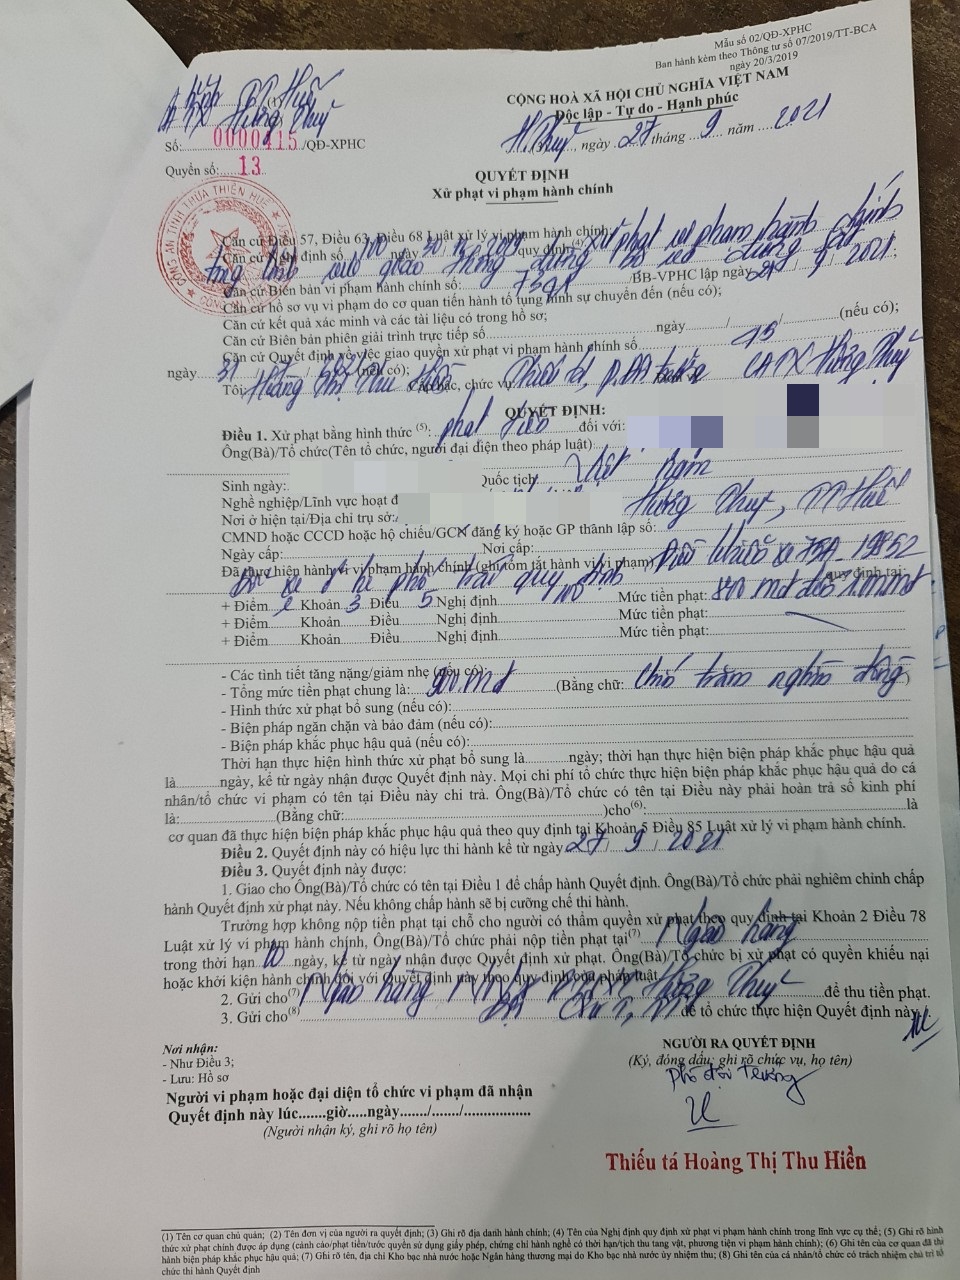 Mẫu số 02/QĐ-XPHC
Ban hành kèm theo Thông tư số 07/2019/TT-BCA
ngày 20/3/2019
CỘNG HOÀ XÃ HỘI CHỦ NGHĨA VIỆT NAM
Độc lập - Tự do - Hạnh phúc
H. Thuỷ, ngày 27 tháng 9 năm 2021
CA TX Hương Thuỷ
Số: 0000415 /QĐ-XPHC
Quyển số: 13
CÔNG AN TỈNH THỪA THIÊN HUẾ
QUYẾT ĐỊNH
Xử phạt vi phạm hành chính
Căn cứ Điều 57, Điều 63, Điều 68 Luật xử lý vi phạm hành chính;
Căn cứ Nghị định số 100 ngày 30 12 2019 quy định (4) xử phạt vi phạm hành chính
trong lĩnh vực giao thông đường bộ và đường sắt
Căn cứ Biên bản vi phạm hành chính số: BB-VPHC lập ngày 9 2021;
Căn cứ hồ sơ vụ vi phạm do cơ quan tiến hành tố tụng hình sự chuyển đến (nếu có);
Căn cứ kết quả xác minh và các tài liệu có trong hồ sơ;
Căn cứ Biên bản phiên giải trình trực tiếp số ngày / / (nếu có);
Căn cứ Quyết định về việc giao quyền xử phạt vi phạm hành phính số
ngày 31 (nếu có);
Tôi: Hoàng Thị Thu Hiền Cấp bậc, chức vụ: Thiếu tá, P. Đội trưởng CATX Hương Thuỷ
QUYẾT ĐỊNH:
Điều 1. Xử phạt bằng hình thức (5): phạt tiền đối với:
Ông(Bà)/Tổ chức(Tên tổ chức, người đại diện theo pháp luật)
Sinh ngày: Quốc tịch: Việt Nam
Nghề nghiệp/Lĩnh vực hoạt đ
Nơi ở hiện tại/Địa chỉ trụ sở: Hương Thuỷ, TT Huế
CMND hoặc CCCD hoặc hộ chiếu/GCN đăng ký hoặc GP thành lập số:
Ngày cấp: Nơi cấp:
Đã thực hiện hành vi vi phạm hành chính (ghi tóm tắt hành vi vi phạm) 75A-19852
Đỗ xe ở hè phố trái quy định quy định tại:
+ Điểm e Khoản 3 Điều 5 Nghị định 100 Mức tiền phạt: 800 mđ đến 1.000 mđ
+ Điểm Khoản Điều Nghị định Mức tiền phạt:
+ Điểm Khoản Điều Nghị định Mức tiền phạt:
- Các tình tiết tăng nặng/giảm nhẹ (nếu có):
- Tổng mức tiền phạt chung là: 900 mđ (Bằng chữ: Chín trăm nghìn đồng)
- Hình thức xử phạt bổ sung (nếu có):
- Biện pháp ngăn chặn và bảo đảm (nếu có):
- Biện pháp khắc phục hậu quả (nếu có):
Thời hạn thực hiện hình thức xử phạt bổ sung là ngày; thời hạn thực hiện biện pháp khắc phục hậu quả
là ngày, kể từ ngày nhận được Quyết định này. Mọi chi phí tổ chức thực hiện biện pháp khắc phục hậu quả do cá
nhân/tổ chức vi phạm có tên tại Điều này chi trả. Ông(Bà)/Tổ chức có tên tại Điều này phải hoàn trả số kinh phí
là: (Bằng chữ: )cho(6): là
cơ quan đã thực hiện biện pháp khắc phục hậu quả theo quy định tại Khoản 5 Điều 85 Luật xử lý vi phạm hành chính.
Điều 2. Quyết định này có hiệu lực thi hành kể từ ngày 27 / 9 / 2021
Điều 3. Quyết định này được:
1. Giao cho Ông(Bà)/Tổ chức có tên tại Điều 1 để chấp hành Quyết định. Ông(Bà)/Tổ chức phải nghiêm chỉnh chấp
hành Quyết định xử phạt này. Nếu không chấp hành sẽ bị cưỡng chế thi hành.
Trường hợp không nộp tiền phạt tại chỗ cho người có thẩm quyền xử phạt theo quy định tại Khoản 2 Điều 78
Luật xử lý vi phạm hành chính, Ông(Bà)/Tổ chức phải nộp tiền phạt tại(7) Ngân hàng
trong thời hạn 10 ngày, kể từ ngày nhận được Quyết định xử phạt. Ông(Bà)/Tổ chức bị xử phạt có quyền khiếu nại
hoặc khởi kiện hành chính đối với Quyết định này theo quy định của pháp luật.
2. Gửi cho(7) Ngân hàng Hương Thuỷ để thu tiền phạt.
3. Gửi cho(8) để tổ chức thực hiện Quyết định này.
Nơi nhận:
- Như Điều 3;
- Lưu: Hồ sơ
Người vi phạm hoặc đại diện tổ chức vi phạm đã nhận
Quyết định này lúc.......giờ.....ngày......./......./.................
(Người nhận ký, ghi rõ họ tên)
NGƯỜI RA QUYẾT ĐỊNH
(Ký, đóng dấu; ghi rõ chức vụ, họ tên)
Phó đội trưởng
Thiếu tá Hoàng Thị Thu Hiền
(1) Tên cơ quan chủ quản; (2) Tên đơn vị của người ra quyết định; (3) Ghi rõ địa danh hành chính; (4) Tên của Nghị định quy định xử phạt vi phạm hành chính trong lĩnh vực cụ thể; (5) Ghi rõ hình
thức xử phạt chính được áp dụng (cảnh cáo/phạt tiền/tước quyền sử dụng giấy phép, chứng chỉ hành nghề có thời hạn/tịch thu tang vật, phương tiện vi phạm hành chính); (6) Ghi tên của cơ quan đã thi
hành biện pháp khắc phục hậu quả; (7) Ghi rõ tên, địa chỉ Kho bạc nhà nước hoặc Ngân hàng thương mại do Kho bạc nhà nước ủy nhiệm thu; (8) Ghi tên của cá nhân/tổ chức có trách nhiệm chủ trì tổ
chức thi hành Quyết định